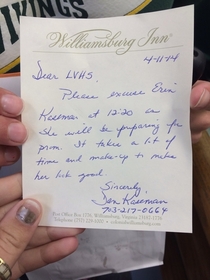 Williamsburg Inn
4-11-14
Dear LVHS,
Please excuse Erin
Keeman at 12:20 as
she will be preparing for
prom. It takes a lot of
time and make-up to make
her look good.
Sincerely,
Dan Keeman
703-217-0664
Post Office Box 1776, Williamsburg, Virginia 23187-1776